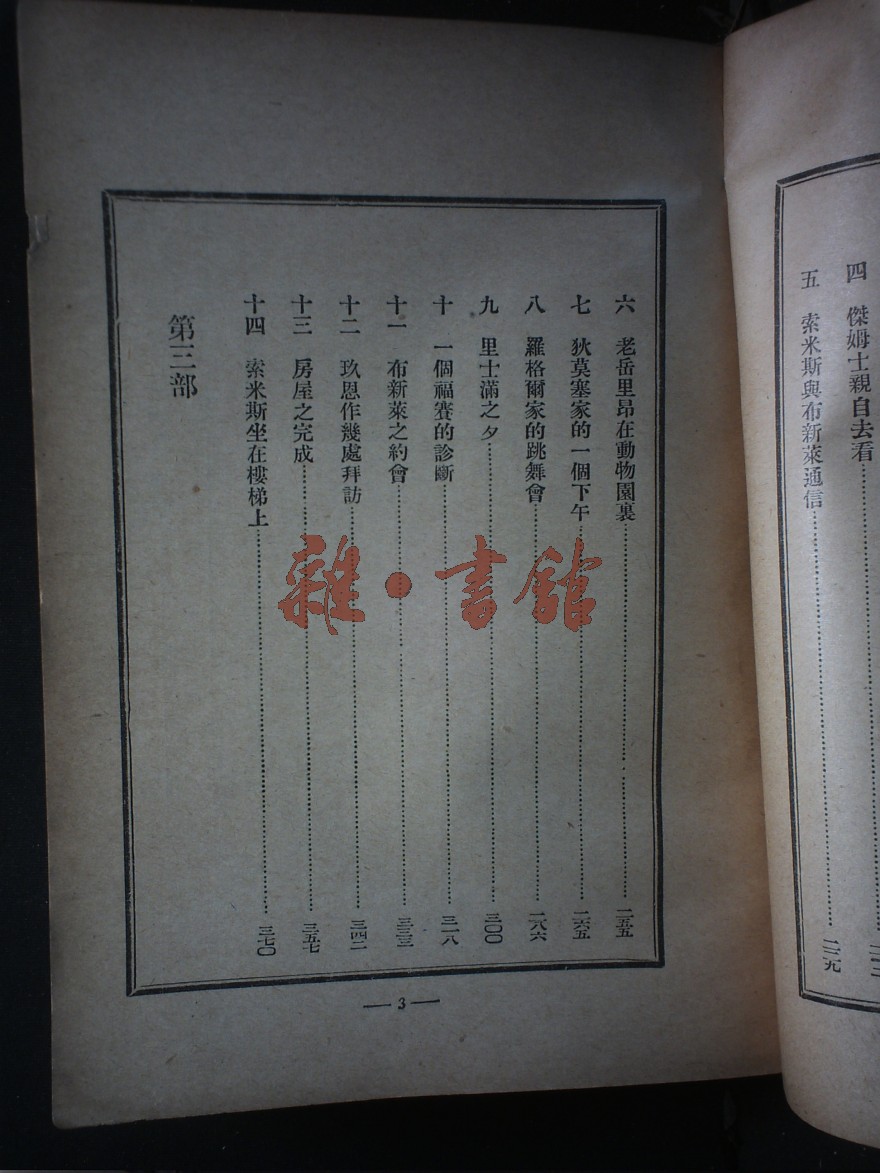 四　傑姆士親自去看
五　索米斯與布新萊通信……二三九
六　老岳里昂在動物園裏……二五五
七　狄莫塞家的一個下午……二六五
八　羅格爾家的跳舞會……二八六
九　里士滿之夕……三〇〇
十　一個福賽的診斷……三一八
十一　布新萊之約會……三三三
十二　玖恩作幾處拜訪……三四二
十三　房屋之完成……三五七
十四　索米斯坐在樓梯上……三七〇
第三部
— 3 —
雜·書館